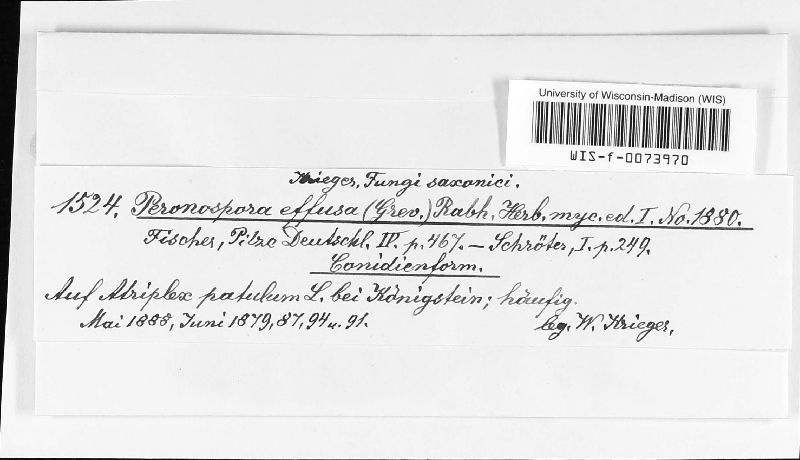 University of Wisconsin-Madison (WIS)
WIS-f-0073970
Krieger, Fungi saxonici.
1524. Peronospora effusa (Grev.) Rabh. Herb. myc. ed. I. No. 1880.
Fischer, Pilze Deutschl. IV. p. 467. — Schröter, I. p. 249.
Conidienform.
Auf Atriplex patulum L. bei Königstein; häufig.
Mai 1888, Juni 1879, 87, 94 u. 91.
leg. W. Krieger.